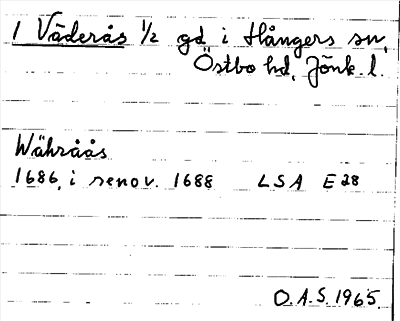 1 Väderås 1/2 gd i Hångers sn,
Östbo hd, Jönk. l.
Währåås
1686, i renov. 1688 LSA E28
O.A.S. 1965.